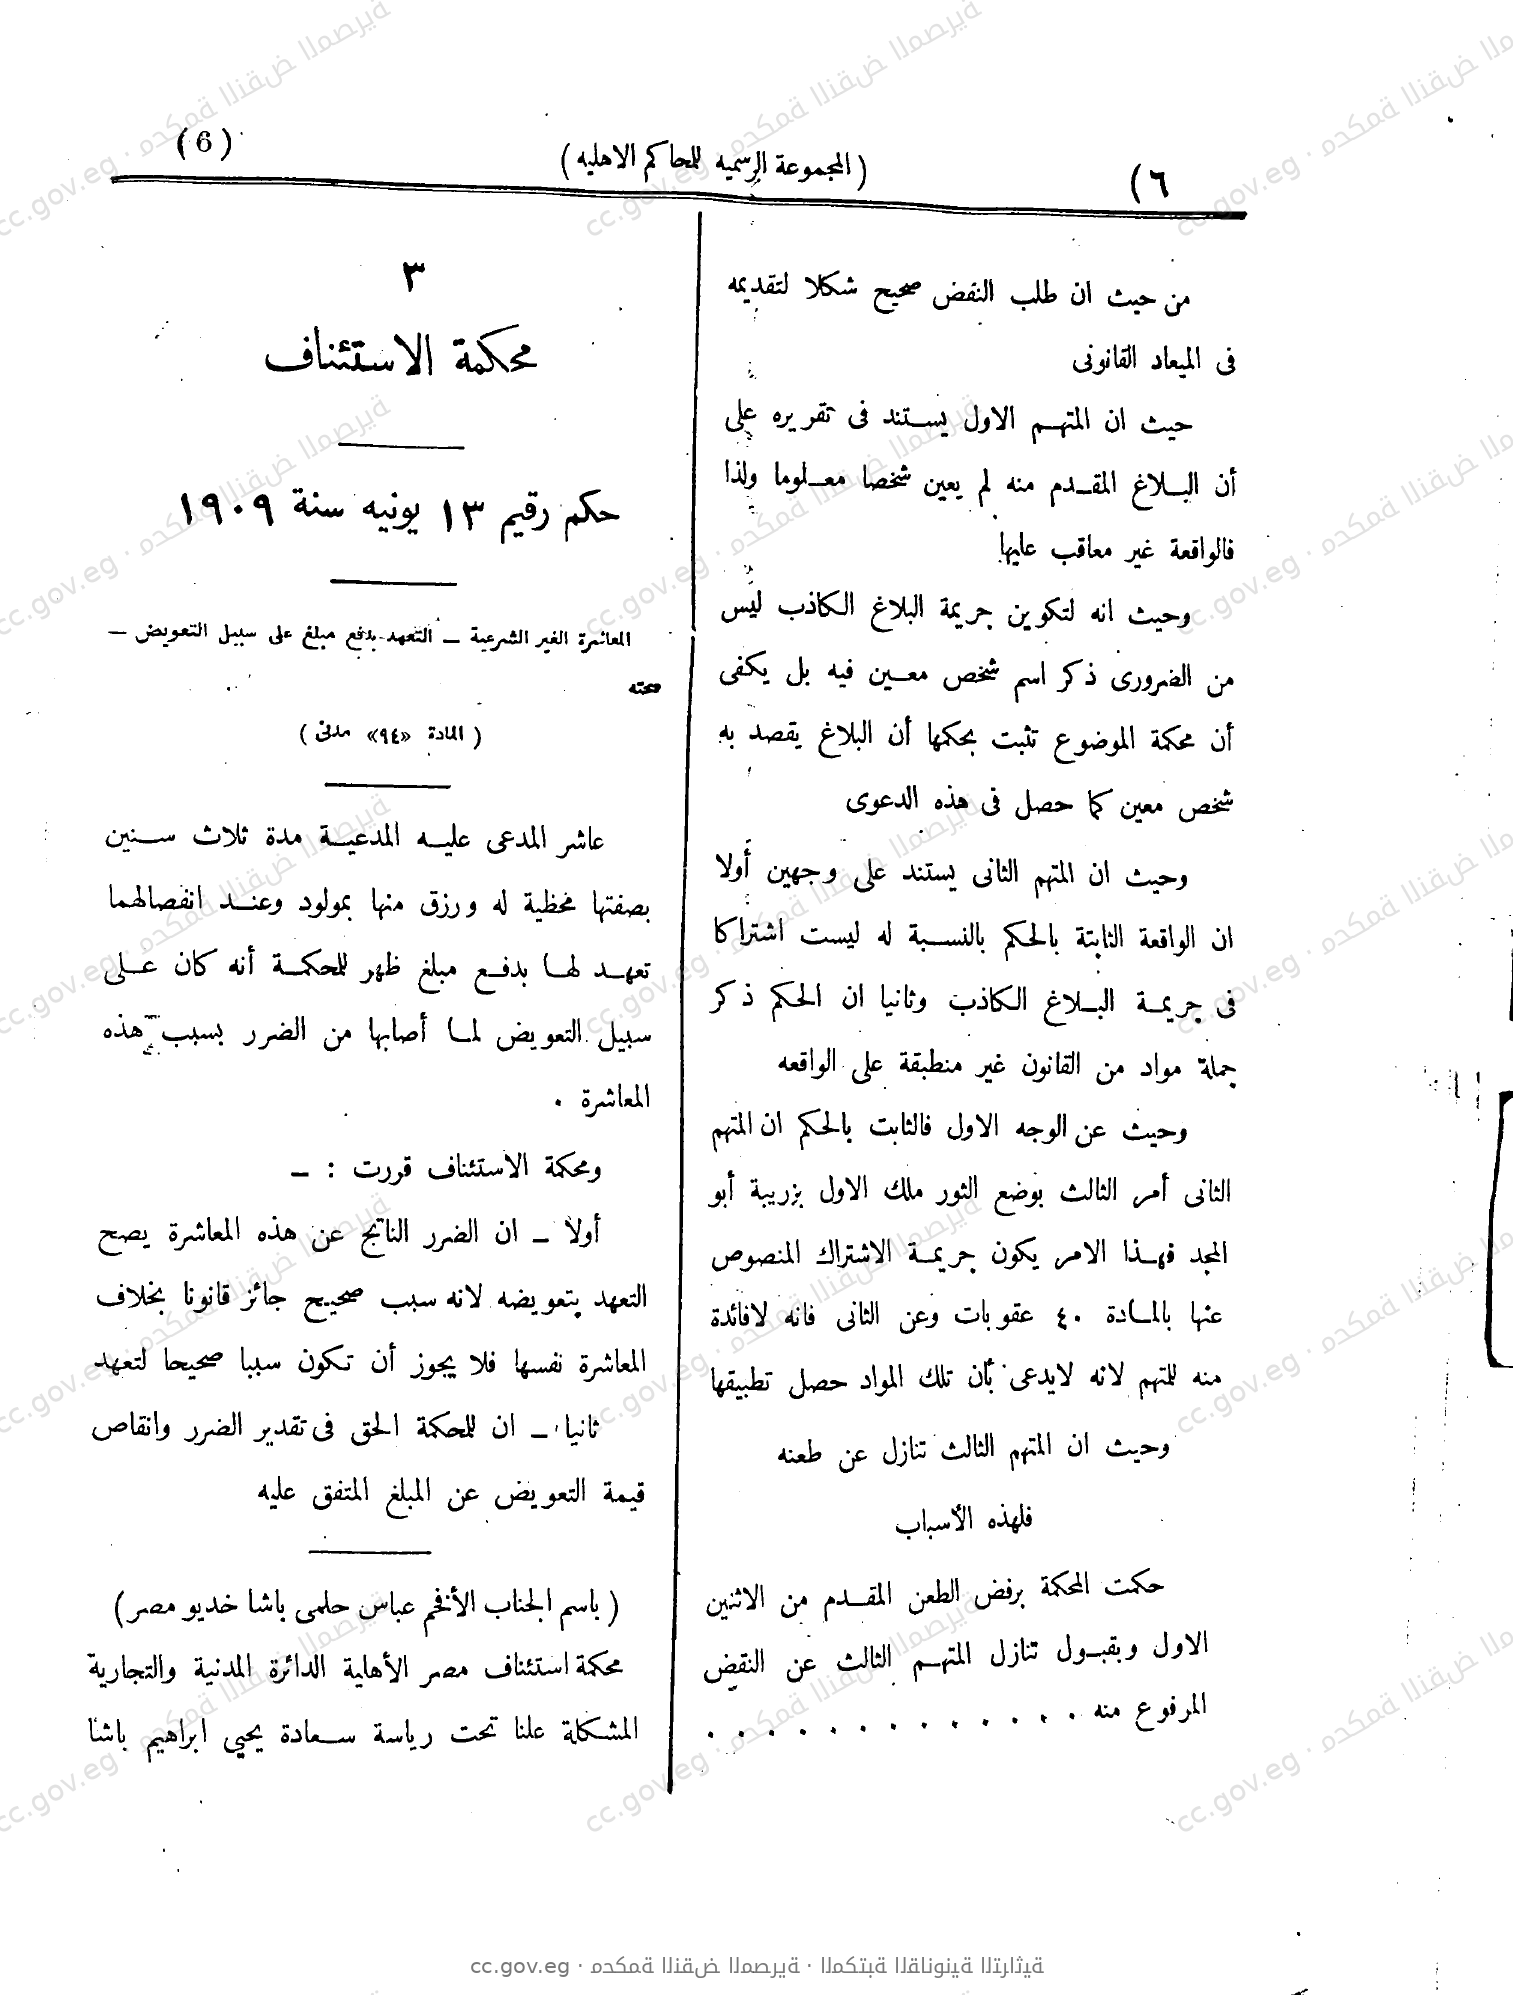 ٦)
(المجموعة الرسميه للمحاكم الاهليه)
(6)
من حيث ان طلب النقض صحيح شكلا لتقديمه
فى الميعاد القانونى
حيث ان المتهم الاول يستند فى تقريره على
أن البلاغ المقدم منه لم يعين شخصا معلوما ولذا
فالواقعة غير معاقب عليها
وحيث انه لتكوين جريمة البلاغ الكاذب ليس
من الضرورى ذكر اسم شخص معين فيه بل يكفى
أن محكمة الموضوع تثبت بحكمها أن البلاغ يقصد به
شخص معين كما حصل فى هذه الدعوى
وحيث ان المتهم الثانى يستند على وجهين أولا
ان الواقعة الثابتة بالحكم بالنسبة له ليست اشتراكا
فى جريمة البلاغ الكاذب وثانيا ان الحكم ذكر
جملة مواد من القانون غير منطبقة على الواقعه
وحيث عن الوجه الاول فالثابت بالحكم ان المتهم
الثانى أمر الثالث بوضع الثور ملك الاول بزريبة أبو
المجد فهذا الامر يكون جريمة الاشتراك المنصوص
عنها بالمادة ٤٠ عقوبات وعن الثانى فانه لافائدة
منه للمتهم لانه لايدعى بأن تلك المواد حصل تطبيقها
وحيث ان المتهم الثالث تنازل عن طعنه
فلهذه الأسباب
حكمت المحكمة برفض الطعن المقدم من الاثنين
الاول وبقبول تنازل المتهم الثالث عن النقض
المرفوع منه . . . . . . . . . . . . .
٣
محكمة الاستئناف
حكم رقيم ١٣ يونيه سنة ١٩٠٩
المعاشرة الغير الشرعية ــ التعهد بدفع مبلغ على سبيل التعويض ــ
صحته
( المادة «٩٤» مدنى )
عاشر المدعى عليه المدعية مدة ثلاث سنين
بصفتها محظية له ورزق منها بمولود وعند انفصالهما
تعهد لها بدفع مبلغ ظهر للمحكمة أنه كان على
سبيل التعويض لما أصابها من الضرر بسبب هذه
المعاشرة .
ومحكمة الاستئناف قررت : ــ
أولا ــ ان الضرر الناتج عن هذه المعاشرة يصح
التعهد بتعويضه لانه سبب صحيح جائز قانونا بخلاف
المعاشرة نفسها فلا يجوز أن تكون سببا صحيحا لتعهد
ثانيا ــ ان للمحكمة الحق فى تقدير الضرر وانقاص
قيمة التعويض عن المبلغ المتفق عليه
( باسم الجناب الأفخم عباس حلمى باشا خديو مصر )
محكمة استئناف مصر الأهلية الدائرة المدنية والتجارية
المشكلة علنا تحت رياسة سعادة يحيى ابراهيم باشا
cc.gov.eg · محكمة النقض المصرية · المكتبة القانونية التراثية